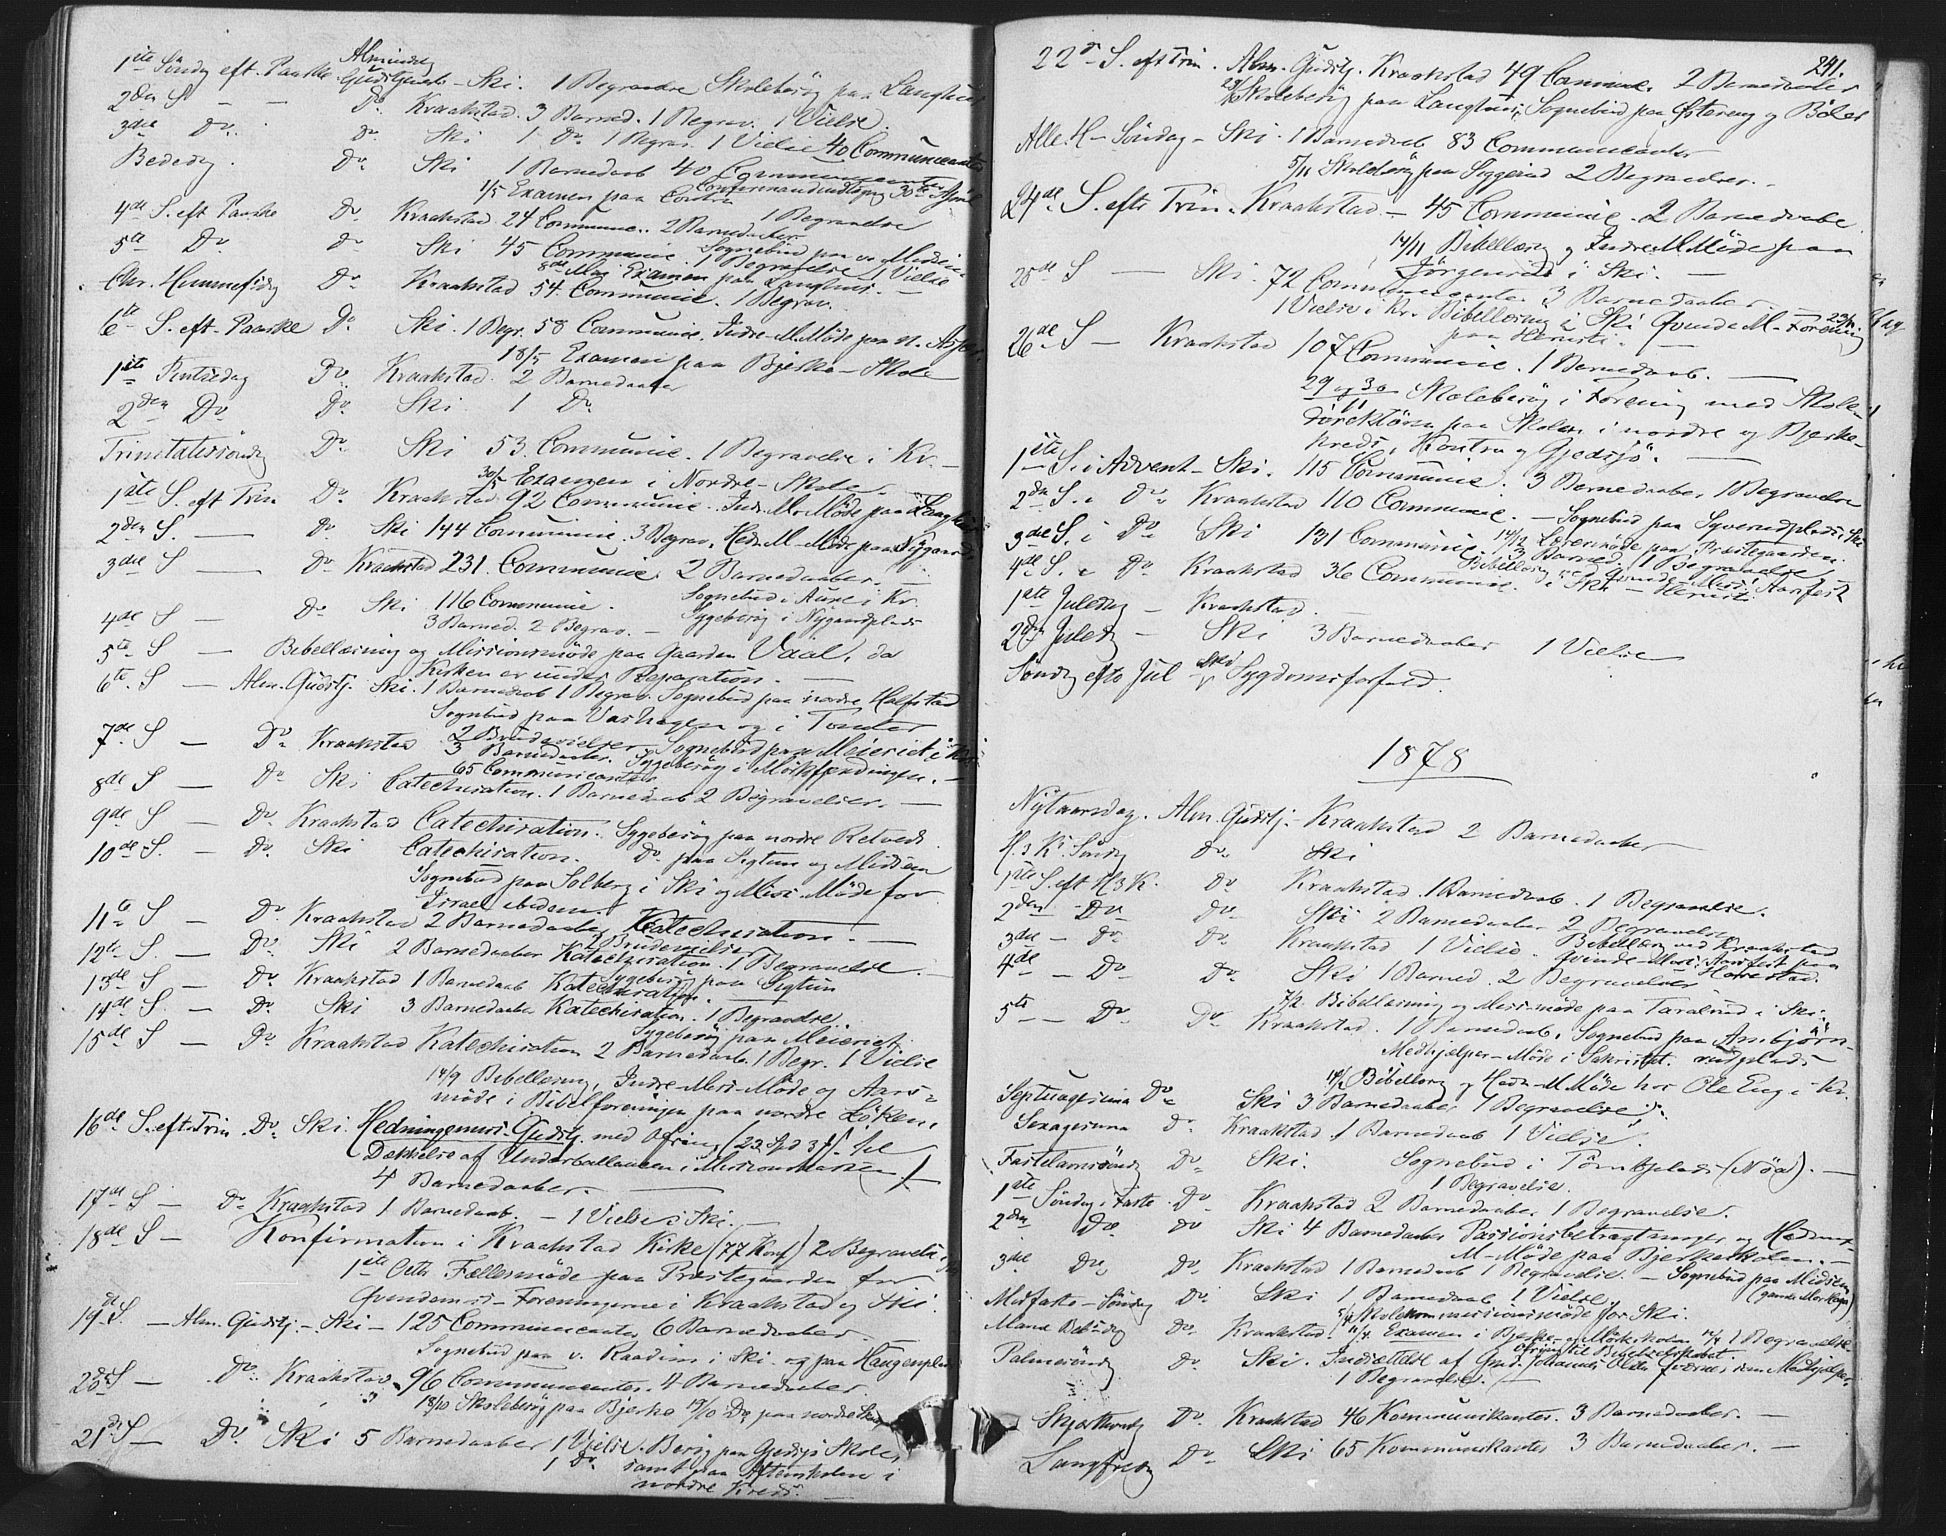 1ste Søndg eft. Paaske Almindelig Gudstj. Ski. 1 Begravelse Skolebesøg paa Langhus
2den S — — Do Kraakstad 3 Barned. 1 Begrav. 1 Vielse
3die Do Do Ski 1 Do 1 Begrav. 1 Vielse 40 Communicanter
Bededg. Do Ski 1 Barnedaab 40 Communicanter
1/5 Examen paa Contra Confirmandindtagng 30te April
4de S. eft Paaske Do Kraakstad 24 Communic. 2 Barnedaaber 1 Begravelse
5te Do Do Ski 45 Communic. Sognebud paa
1 Begravelse 1 Vielse
Chr. Himmelfdg Do Kraakstad 54 Communic. 1 Begrav.
8de Maj Examen paa Langhus. —
6te S. eft. Paaske Do Ski. 1 Begr. 58 Communic. Indre-M. Møde paa n.
18/5 Examen paa Bjerke-Skole
1ste Pintsedag Do Kraakstad. 2 Barnedaaber
2den Do Do Ski 1 Do
Trinitatissøndg Do Ski 53 Communic. 1 Begravelse i Kr. —
30/5 Examen i Nordre-Skole
1ste S. eft Trin Do Kraakstad 92 Communic. Indr. M. Møde paa Langhus
2den S. — Do Ski 144 Communic. 3 Begrav. Hedn. M-Møde paa Nygaard
3die S — Do Kraakstad 231. Communic. 2 Barnedaaber. —
4de S — Do Ski 116 Communic. Sognebud i i Kr.
3 Barned. 2 Begrav. — Sygebesøg i Nygaardplads
5te S — Bibellæsning og Missionsmøde paa Gaarden Vaal, da
Kirken er under Reparation. —
6te S — Alm. Gudstj. Ski. 1 Barnedaab 1 Begrav. Sognebud paa nordre Halfstad
Sognebud paa Vashagen og i Tomter
7de S — Do Kraakstad 2 Brudevielser Sognebud paa Meieriet i
3 Barnedaaber. Sygebesøg i
65 Communicanter
8de S — Do Ski Catechisation. 1 Barnedaab 2 Begravelser. —
9de S — Do Kraakstad Catechisation. Sygebesøg paa nordre Retvedt
10de S. — Do Ski Catechisation. Do paa Sigtun og Midsem
Sognebud paa Solberg i Ski og Miss. Møde for
Israel
11te S — Do Kraakstad 2 Barnedaaber Katechisation. —
2 Brudevielser
12te S. — Do Ski 2 Barnedaaber Katechisation. 1 Begravelse. —
Sygebesøg paa Sigtun
13de S — Do Kraakstad 1 Barnedaab Katechisation. —
14de S. — Do Ski 3 Barnedaaber Katechisation. 1 Begravelse
Sygebesøg paa Meieriet
15de S — Do Kraakstad Katechisation 2 Barnedaab. 1 Begr. 1 Vielse
14/9 Bibellæsng, Indre-Miss-Møde og Aars-
møde i Bibelforeningen paa nordre Løken.
16de S. eft. Trin Do Ski. Hedningemiss. Gudstj. med Ofring (22 Spd 3 ) til
Dækkelse af Underballancen i Missionskassen)
4 Barnedaaber. —
17de S — Do Kraakstad 1 Barnedaab. — 1 Vielse i Ski. —
18de S — Konfirmation i Kraakstad Kirke (77 Konf) 2 Begravelse
1ste Octb Fællesmøde paa Præstegaarden for
Qvindemiss-Foreningerne i Kraakstad og Ski.
19de S. — Alm. Gudstj. — Ski — 125 Communicanter 6 Barnedaaber. —
Sognebud paa v. Kaadim i Ski og paa Haugenplads
20de S — Do Kraakstad 96 Communicanter. 4 Barnedaaber
18/10 Skolebesøg paa Bjerke 19/10 Do paa nordre Skole
21de S — Do Ski 5 Barnedaaber 1 Vielse. Besøg paa Gjedsjø Skole
1 Do samt paa Aftenskolen i
nordre Kreds. —
241.
22de S. eft Trin. Alm. Gudstj. Kraakstad 49 Communic. 2 Barnedaaber
Skolebesøg paa Langhus, Sognebud paa Østereng og Bøler
Alle H— Søndag — Ski. 1 Barnedaab 83 Communicanter
5/11 Skolebesøg paa Siggerud 2 Begravelser. —
24de S. eft Trin. Kraakstad — 45 Communic. 2 Barnedaabe
14/11 Bibellæsng og Indre M. Møde paa
Jørgensrud i Ski. —
25de S — Ski. 72 Communicanter 3 Barnedaaber
1 Vielse i Kr. Bibellæsng i Ski Qvinde M-Forening 23/11
paa —
26de S — Kraakstad 107 Communic. 1 Barnedaab. —
29 og 30/11 Skolebesøg i Forening med Skole-
direktøren paa Skolen i nordre og Bjerke-
kreds, Kontra og Gjedsjø. —
1ste S. i Advent — Ski. 115 Communic. 3 Barnedaaber 1 Begravelse
2den S. i Do Kraakstad 110 Communic. — Sognebud paa Syverudplads Ski
3die S. i Do Ski 131 Communic. 14/12 Lærermøde paa Præstegaarden.
3 Barned. 1 Begravelse
4de S. i Do Kraakstad 36 Communic. Bibellæsng ved Qvinde-Miss. Aarsfest
i Ski —
1ste Juledag — Kraakstad.
2den Juledg — Ski 3 Barnedaaber 1 Vielse
Søndg efter Jul Ski Sygdomsforfald.
1878
Nytaarsdag. Alm. Gudstj. — Kraakstad 2 Barnedaaber
H. 3. K. Søndg Do Ski
1ste S. eft H 3 K. Do Kraakstad. 1 Barnedaab. 1 Begravelse.
2den — Do Do Ski 2 Barnedaaber 2 Begravelser
3die — Do Do Kraakstad 1 Vielse. Bibellæsng ved Kraakstad
Qvinde-Miss. Aarsfest paa
4de — Do Do Ski 1 Barned. 2 Begravelser
7/2 Bibellæsning og Miss-møde paa Taralrud i Ski.
5te — Do Do Kraakstad. 1 Barnedaab, Sognebud paa Asbjørn-
Medhjelper-Møde i Sakristiet. rudplads
14/2 Bibellæsng og Hedn. M. Møde hos Ole Eng i Kr.
Septuagesima Do Ski 3 Barnedaaber 1 Begravelse.
Sexagesima Do Kraakstad. 1 Barnedaab 1 Vielse
Fastelavnssøndg Do Ski. Sognebud i (Nød). —
1 Begravelse.
1ste Søndag i Faste Do Kraakstad 2 Barnedaaber 1 Begravelse.
2den Do Do Ski 4 Barnedaaber Passionsbetragtninger og Hedninge-
M-Møde paa Bjerkeskolen. —
3die Do Do Kraakstad 1 Barnedaab 1 Begravelse. — Sognebud paa Midsem
Midfaste-Søndag Do Ski 1 Barnedaab 1 Vielse
5/4 Skolekommissionsmøde for Ski.
Mariæ Bebudg Do Kraakstad. 11/4 Examen i Bjerke- og Mørkskolen 12/4 1 Begravelse
Ofring til Bibelselskabet
Palmesøndg Do Ski. Indsættelse af Grd. Johannes Medhjelper.
1 Begravelse. —
Skjærthorsdg Do Kraakstad 46 Kommunikanter. 3 Barnedaaber. —
Langfredg Do Ski 65 Kommunikanter 3 Barnedaaber. —